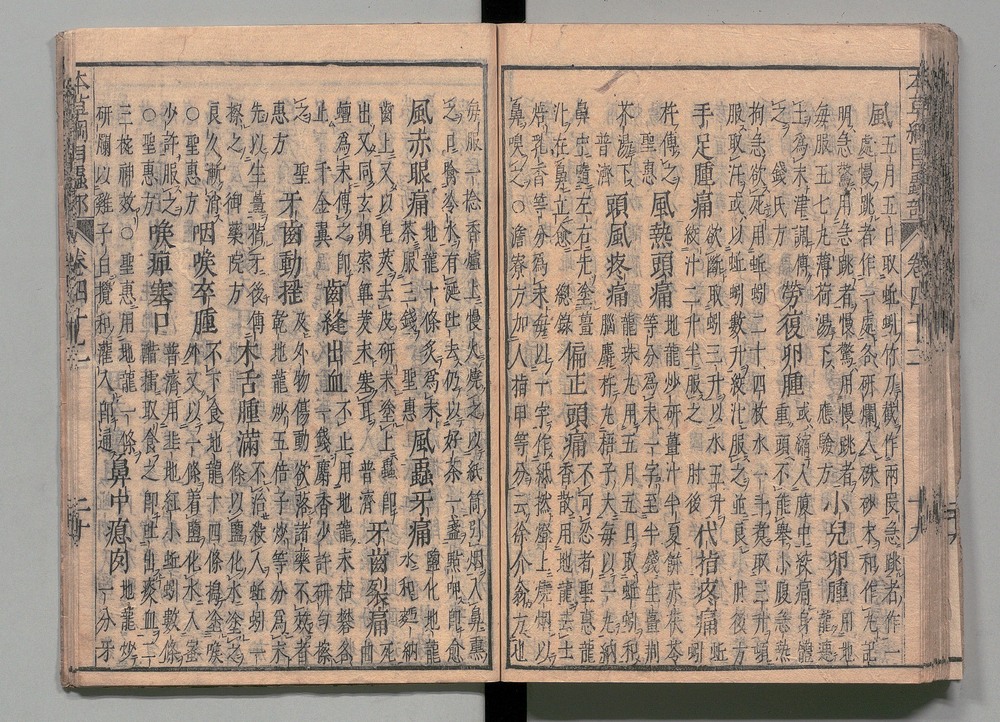 本草綱目蟲部 卷四十二 十九
風 五月五日取蚯蚓竹刀截作兩段急跳者作一
處慢跳者作一處各研爛入硃砂末和作丸記
明急驚用急跳者慢驚用慢跳者
每服五七丸薄荷湯下 應驗方
小兒卵腫 用地
龍連
土為末津調傅
之 錢氏方
勞復卵腫 或縮入腹中絞痛身體
重頭不能舉小腹急熱
拘急欲死用蚯蚓二十四枚水一斗煮取三升頓
服取汗或以蚯蚓數升絞汁服之並良 肘後方
手足腫痛 欲斷取蚓三升以水五升
絞汁二升半服之 肘後
代指疼痛 蚯
蚓
杵傅之
聖惠
風熱頭痛 地龍炒研薑汁半夏餅赤茯苓
等分為末一字至半錢生薑荊
芥湯下
普濟
頭風疼痛 龍珠丸用五月五日取蚯蚓和
腦麝杵丸梧子大每以一丸納
鼻中隨左右先塗薑
汁在鼻立愈 總錄
偏正頭痛 不可忍者聖惠龍
香散用地龍去土
焙乳香等分為末每以一字作紙撚燈上燒煙以
鼻嗅之○澹寮方加人指甲等分云徐介翁方也
每服一捻香爐上慢火燒之以紙筒引烟入鼻熏
之口噙冷水有涎吐去仍以好茶一盞點呷即愈
風赤眼痛 地龍十條炙為末
茶服三錢 聖惠
風蟲牙痛 鹽化地龍
水和麪納
齒上又以皂莢去皮研末塗上蟲即
出又同玄胡索蓽茇末塞耳 普濟
牙齒裂痛 死
曲
蟺為末傅之即
止 千金翼
齒縫出血 不止用地龍末枯礬各
一錢麝香少許研勻擦
之 聖
惠方
牙齒動搖 及外物傷動欲落諸藥不效者
乾地龍炒五倍子炒等分為末
先以生薑揩牙後傅
擦之 御藥院方
木舌腫滿 不治殺人蚯蚓一
條以鹽化水塗之
良久漸消
○聖惠方
咽喉卒腫 不下食地龍十四條搗塗喉
外又以一條着鹽化水入蜜
少許服之
○聖惠方
喉痺塞口 普濟用韭地紅小蚯蚓數條
醋擂取食之即吐出痰血二
三碗神效○聖惠用地龍一條
研爛以雞子白攪和灌入即通
鼻中瘜肉 地龍炒
一分牙
本草綱目蟲部 卷四十二 二十